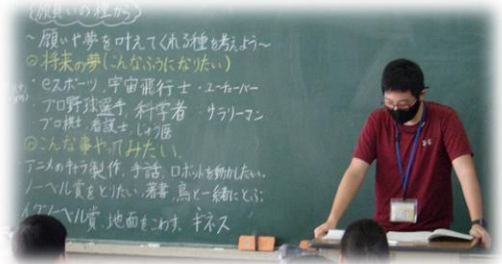 願いの種から
～願いや夢を叶えてくれる種を考えよう～
◎将来の夢(こんなふうになりたい)
・eスポーツ、宇宙飛行士・ユーチューバー
プロ野球選手、科学者・サラリーマン
プロ棋士、看護士、しゅう医
◎こんな事やってみたい。
アニメのキャラ製作、手話、ロボットを動かしたい。
ノーベル賞をとりたい、著書、鳥と一緒にとぶ
イグノーベル賞、地面をこわす、ギネス